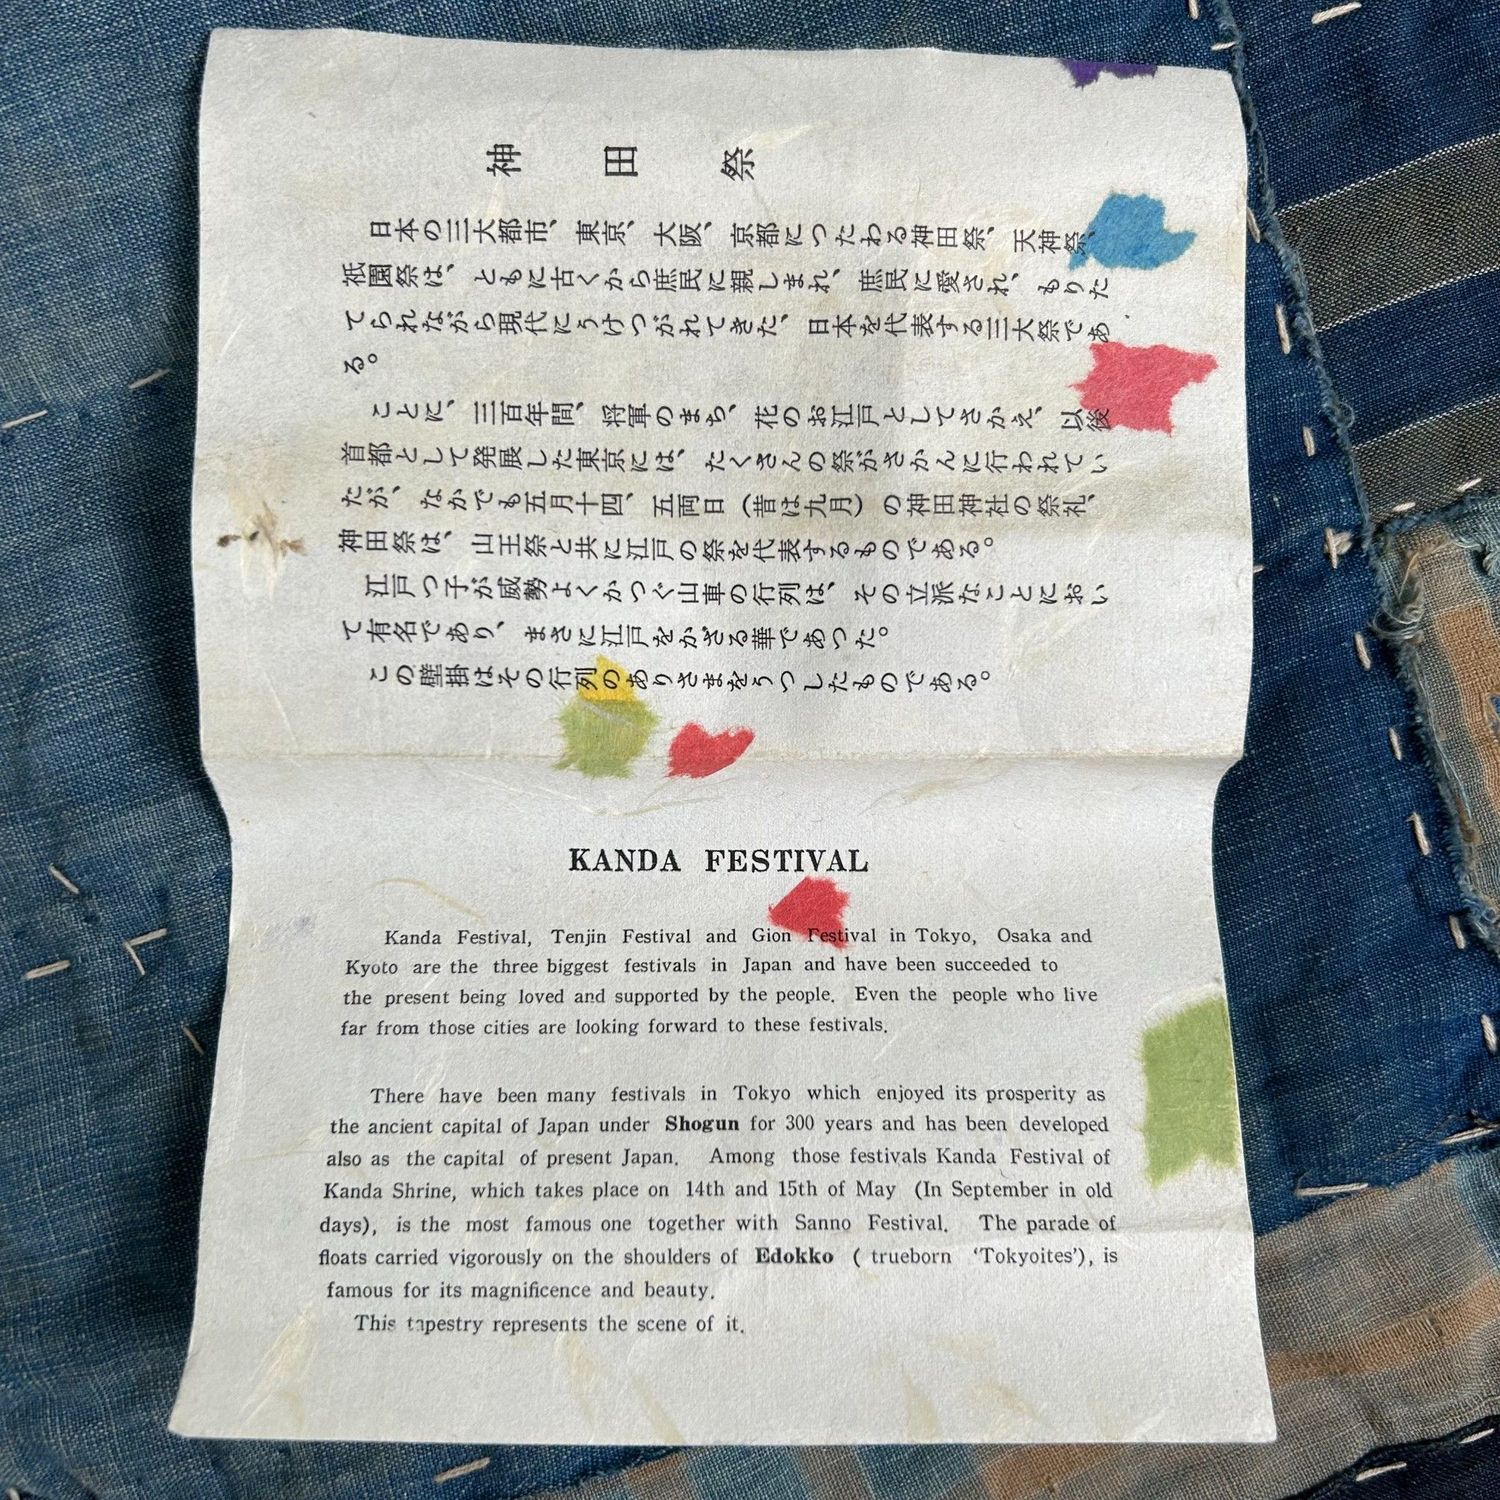 神田祭
日本の三大都市、東京、大阪、京都につたわる神田祭、天神祭、
祇園祭は、ともに古くから庶民に親しまれ、庶民に愛され、もりた
てられながら現代にうけつがれてきた、日本を代表する三大祭であ
る。
ことに、三百年間、将軍のまち、花のお江戸としてさかえ、以後
首都として発展した東京には、たくさんの祭がさかんに行われてい
たが、なかでも五月十四、五両日(昔は九月)の神田神社の祭礼、
神田祭は、山王祭と共に江戸の祭を代表するものである。
江戸っ子が威勢よくかつぐ山車の行列は、その立派なことにおい
て有名であり、まさに江戸をかざる華であった。
この壁掛はその行列のありさまをうつしたものである。
KANDA FESTIVAL
Kanda Festival, Tenjin Festival and Gion Festival in Tokyo, Osaka and
Kyoto are the three biggest festivals in Japan and have been succeeded to
the present being loved and supported by the people. Even the people who live
far from those cities are looking forward to these festivals.
There have been many festivals in Tokyo which enjoyed its prosperity as
the ancient capital of Japan under Shogun for 300 years and has been developed
also as the capital of present Japan. Among those festivals Kanda Festival of
Kanda Shrine, which takes place on 14th and 15th of May (In September in old
days), is the most famous one together with Sanno Festival. The parade of
floats carried vigorously on the shoulders of Edokko ( trueborn 'Tokyoites'), is
famous for its magnificence and beauty.
This tapestry represents the scene of it.